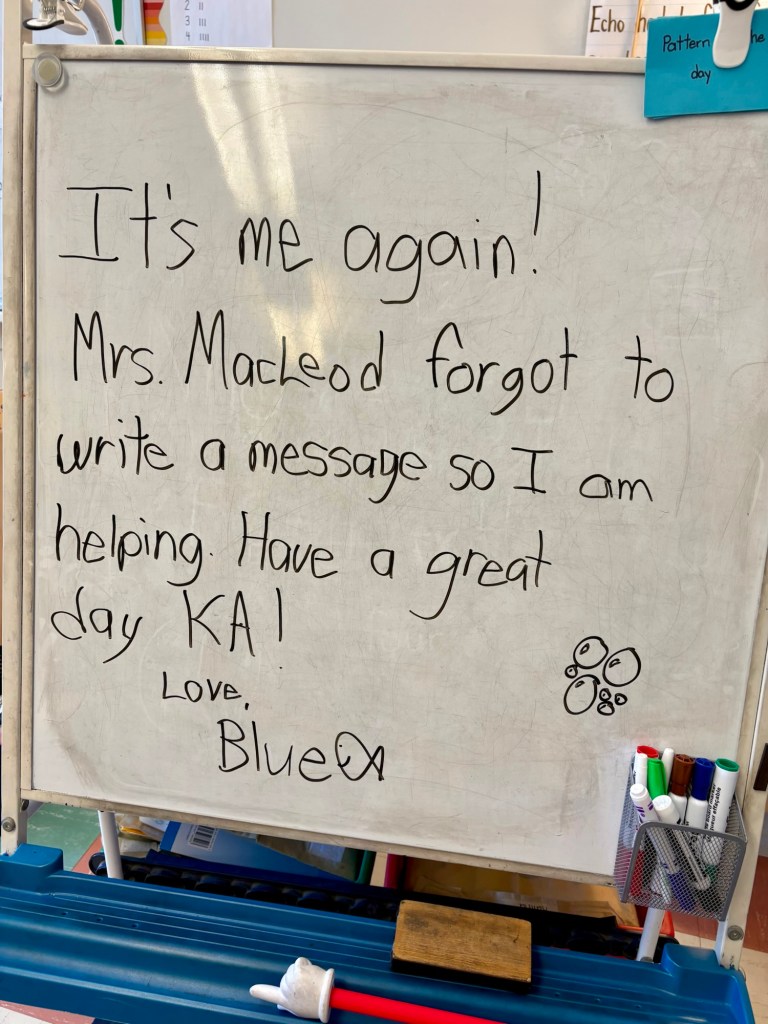 2
3
4
Echo
Pattern
day
It's me again!
Mrs. MacLeod forgot to
write a message so I am
helping. Have a great
day KA!
Love,
Blue